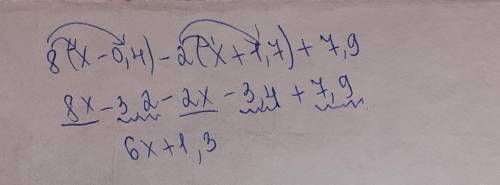 8(x-0,4)-2(x+1,7)+7,9
8x-3,2-2x-3,4+7,9
6x+1,3